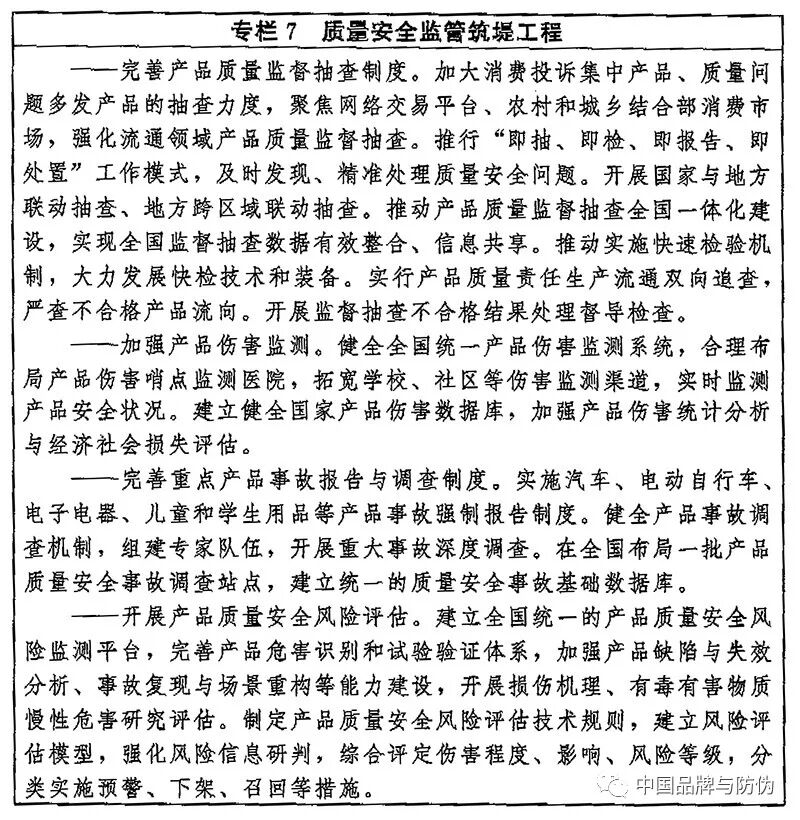 专栏 7　质量安全监管筑堤工程
——完善产品质量监督抽查制度。加大消费投诉集中产品、质量问
题多发产品的抽查力度，聚焦网络交易平台、农村和城乡结合部消费市
场，强化流通领域产品质量监督抽查。推行“即抽、即检、即报告、即
处置”工作模式，及时发现、精准处理质量安全问题。开展国家与地方
联动抽查、地方跨区域联动抽查。推动产品质量监督抽查全国一体化建
设，实现全国监督抽查数据有效整合、信息共享。推动实施快速检验机
制，大力发展快检技术和装备。实行产品质量责任生产流通双向追查，
严查不合格产品流向。开展监督抽查不合格结果处理督导检查。
——加强产品伤害监测。健全全国统一产品伤害监测系统，合理布
局产品伤害哨点监测医院，拓宽学校、社区等伤害监测渠道，实时监测
产品安全状况。建立健全国家产品伤害数据库，加强产品伤害统计分析
与经济社会损失评估。
——完善重点产品事故报告与调查制度。实施汽车、电动自行车、
电子电器、儿童和学生用品等产品事故强制报告制度。健全产品事故调
查机制，组建专家队伍，开展重大事故深度调查。在全国布局一批产品
质量安全事故调查站点，建立统一的质量安全事故基础数据库。
——开展产品质量安全风险评估。建立全国统一的产品质量安全风
险监测平台，完善产品危害识别和试验验证体系，加强产品缺陷与失效
分析、事故复现与场景重构等能力建设，开展损伤机理、有毒有害物质
慢性危害研究评估。制定产品质量安全风险评估技术规则，建立风险评
估模型，强化风险信息研判，综合评定伤害程度、影响、风险等级，分
类实施预警、下架、召回等措施。
中国品牌与防伪